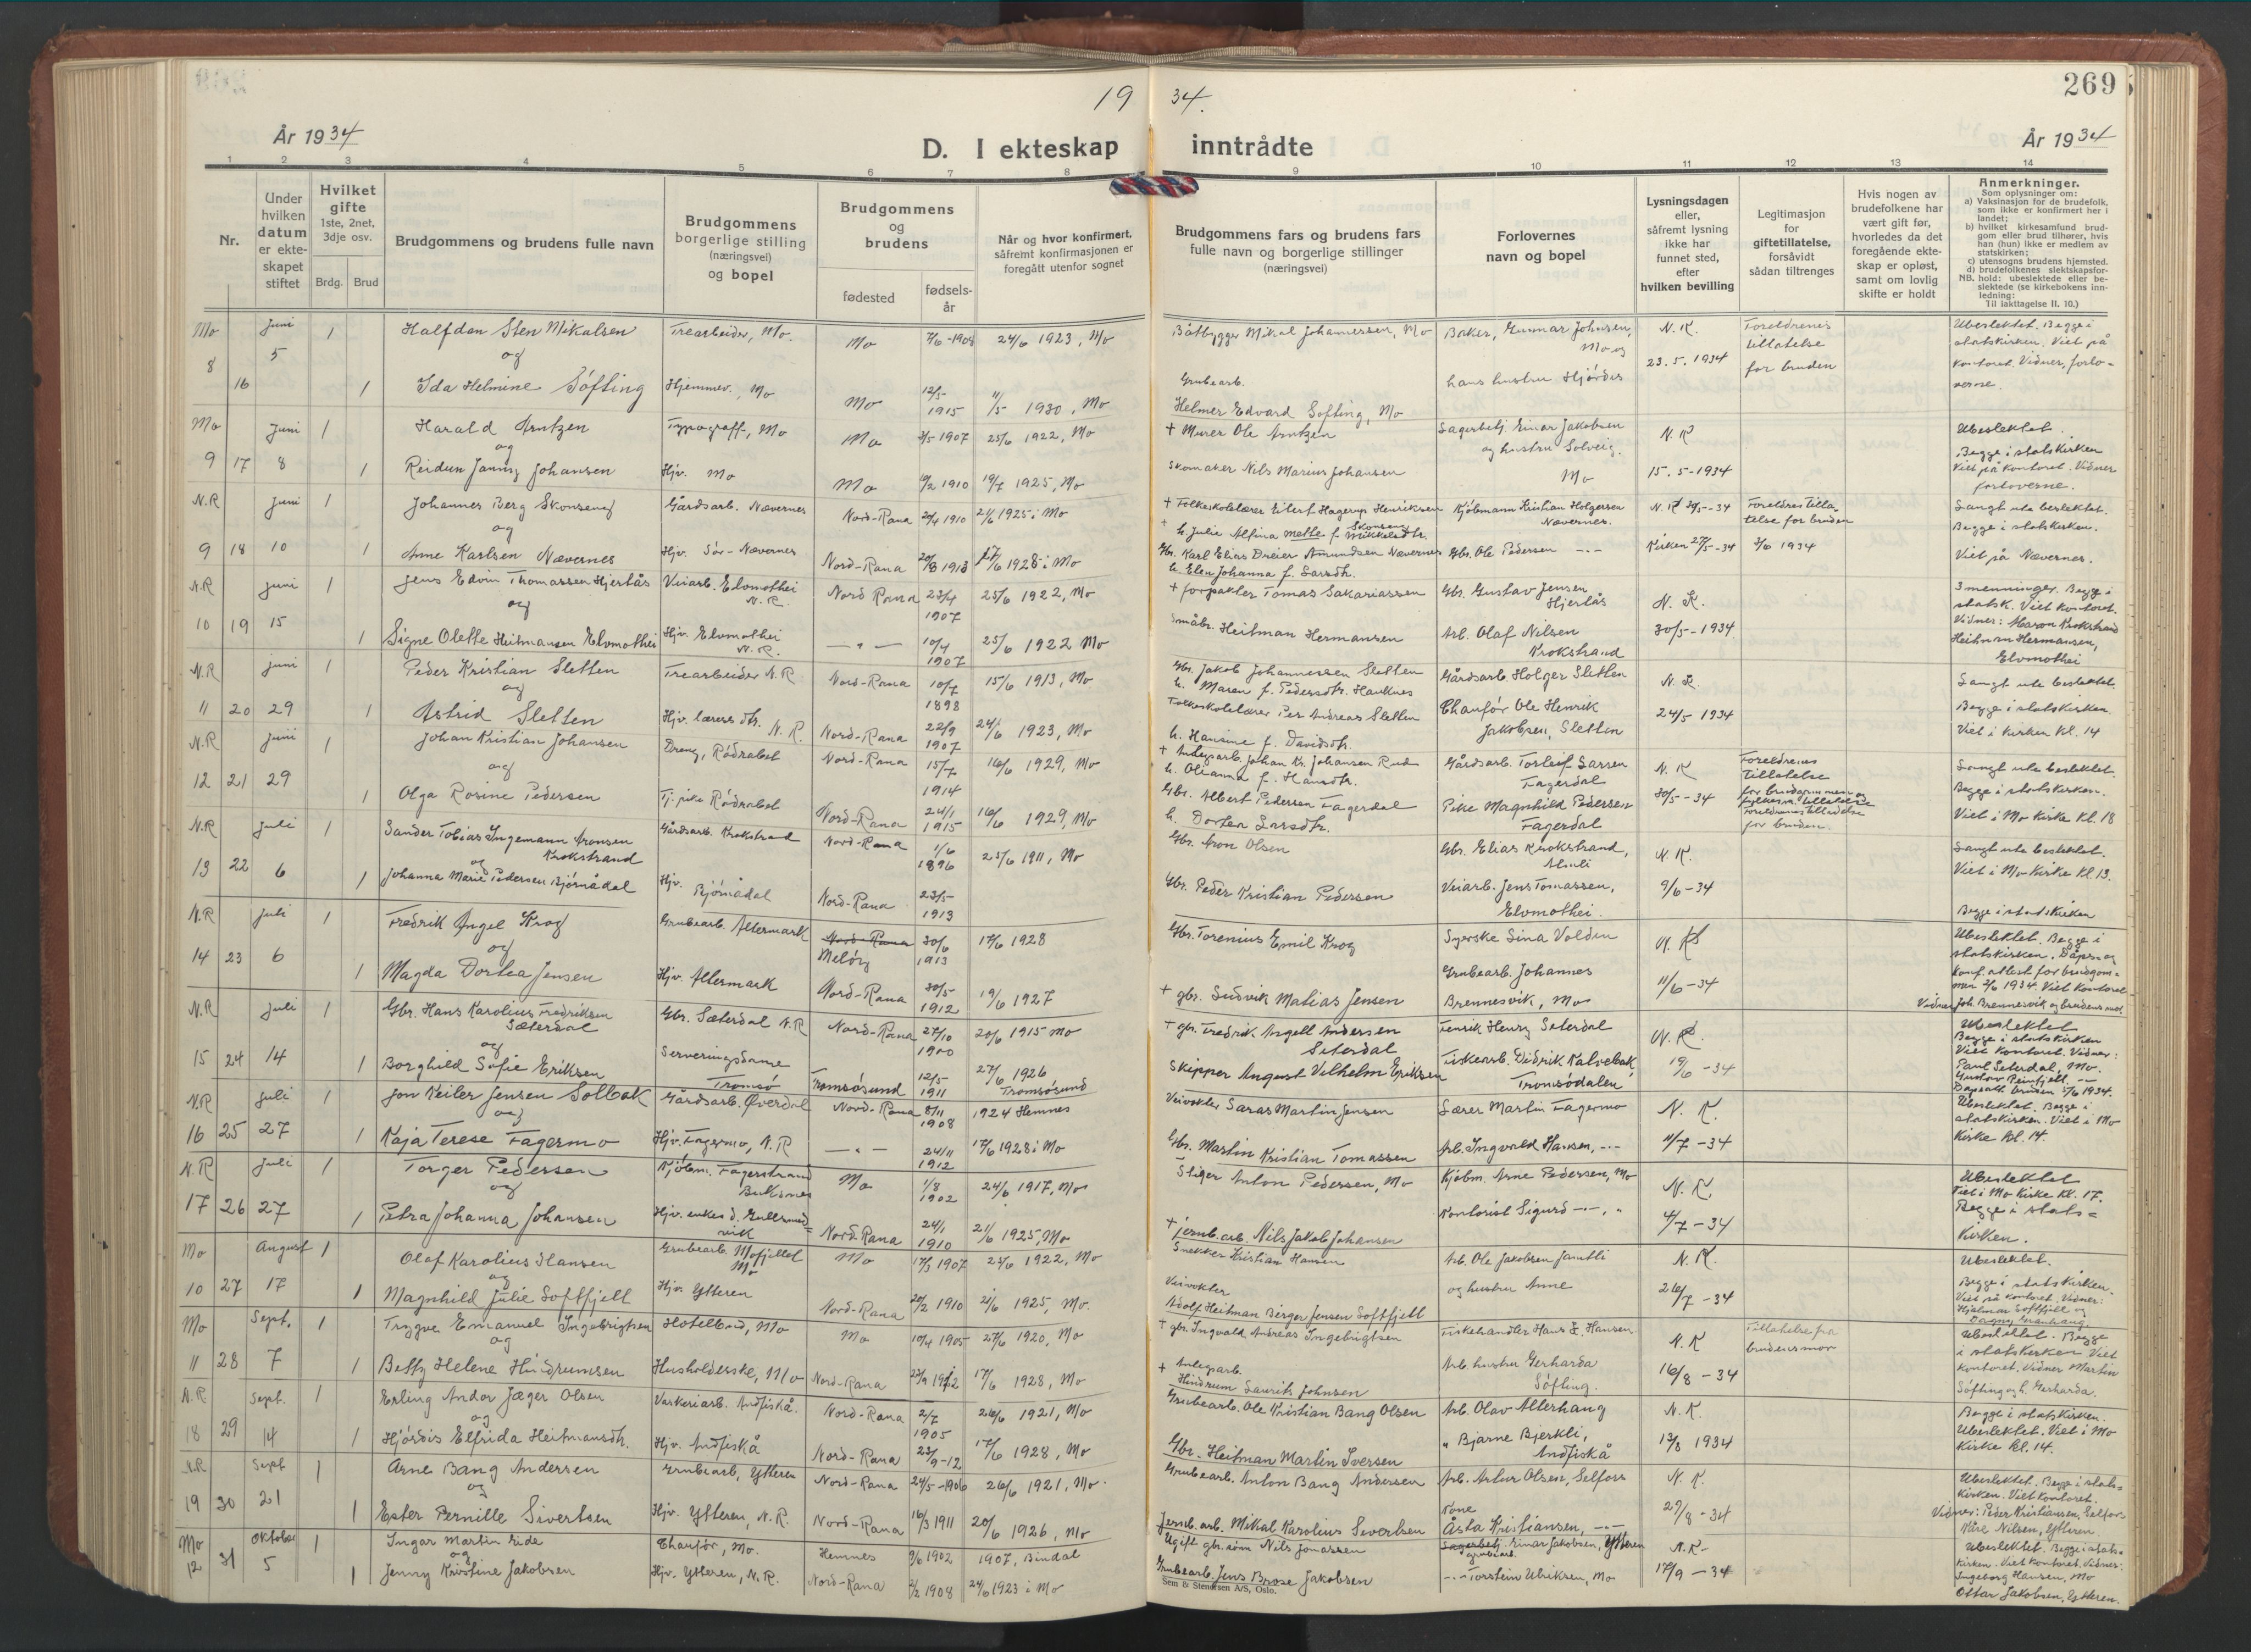 19 34.
269
År 1934
D. I ekteskap inntrådte
År 1934
1 2 3 4 5 6 7 8 9 10 11 12 13 14
Nr.
Under hvilken datum er ekteskapet stiftet
Hvilket gifte 1ste, 2net, 3dje osv.
Brdg. Brud
Brudgommens og brudens fulle navn
Brudgommens borgerlige stilling (næringsvei) og bopel
Brudgommens og brudens
fødested
fødselsår
Når og hvor konfirmert, såfremt konfirmasjonen er foregått utenfor sognet
Brudgommens fars og brudens fars fulle navn og borgerlige stillinger (næringsvei)
Forlovernes navn og bopel
Lysningsdagen eller, såfremt lysning ikke har funnet sted, efter hvilken bevilling
Legitimasjon for giftetillatelse, forsåvidt sådan tiltrenges
Hvis nogen av brudefolkene har vært gift før, hvorledes da det foregående ekteskap er opløst, samt om lovlig skifte er holdt
Anmerkninger.
Som oplysninger om:
a) Vaksinasjon for de brudefolk, som ikke er konfirmert her i landet;
b) hvilket kirkesamfund brudgom eller brud tilhører, hvis han (hun) ikke er medlem av statskirken;
c) utensogns brudens hjemsted.
d) brudefolkenes slektskapsforhold: ubeslektede eller beslektede (se kirkebokens innledning:
NB. Til iakttagelse II. 10.)
Mo 8 16 Juni 5 1 Halfdan Sten Mikalsen Trearbeider, Mo. Mo 7/6-1908 24/6 1923, Mo Båtbygger Mikal Johannessen, Mo Baker, Gunnar Johnsen, Mo og N. K. Foreldrenes tillatelse Ubeslektet. Begge i statskirken. Viet på
og
1 Ida Helmine Söfting Hjemmev., Mo Mo 12/5 1915 11/5 1930, Mo Grubearb. Helmer Edvard Söfting, Mo hans hustru Hjördis 23.5.1934 for bruden kontoret. Vidner, forloverne.
Mo 9 17 Juni 8 1 Harald Arntzen Typograff, Mo Mo 3/5 1907 25/6 1922, Mo + Murer Ole Arntzen Sagarbetj. Einar Jakobsen N. K Ubeslektet.
og
1 Reidun Janny Johansen Hjv. Mo Mo 10/2 1910 19/7 1925, Mo Skomaker Nils Marius Johansen og hustru Solveig. Mo 15.5-1934 Begge i statskirken Viet på kontoret. Vidner forloverne.
N.R 9 18 Juni 10 1 Johannes Berg Skonseng Gårdsarb. Nævernes Nord-Rana 20/4 1910 21/6 1925 i Mo + Folkeskolelærer Eilert Hagerup Henriksen Skonseng Kjöbmann Kristian Holgersen Nævernes. N. K Foreldres tillatelse for bruden Langt ute beslektet.
og
+ h. Julie Alfina Mette f. Mikkelsdtr.
1 Anne Karlsen Nævernes Hjv. Sör-Nævernes Nord-Rana 20/8 1913 17/6 1928 i Mo Gbr. Karl Elias Dreier Amundsen Nævernes Gbr. Ole Pedersen -"- Kirken 27/5-34 2/6 1934 Begge i statskirken. Viet på Nævernes.
h. Elen Johanna f. Larsdtr.
N.R 10 19 juni 15 1 Jens Edvin Thomassen Hjertås Veiarb. Elvmothei N.R. Nord Rana 23/4 1907 25/6 1922, Mo + forpakter Tomas Sakariassen Gbr. Gustav Jensen Hjertås N. K. 3 menninger. Begge i statsk. Viet kontoret.
og
1 Signe Olette Heitmansen Elvmothei Hjv. Elvmothei N.R. -"- 10/4 1907 25/6 1922 Mo Småbr. Heitman Hermansen Arb. Olaf Nilsen Krokstrand 30/5-1934 Vidner: Krokstrand Heitman Hermansen, Elvmothei
N.R 11 20 juni 29 1 Peder Kristian Sletten Trearbeider N.R Nord-Rana 10/7 1898 15/6 1913, Mo Gbr. Jakob Johannessen Sletten Gårdsarb. Holger Sletten N. K. Langt ute beslektet.
og
h. Maren f. Pedersdtr. Hauknes
1 Astrid Sletten Hjv. lærers dtr. N.R. Nord-Rana 22/9 1907 24/6 1923, Mo Folkeskolelærer Per Andreas Sletten Chauför Ole Henrik Jakobsen, Sletten 24/5-1934 Begge i statskirken. Viet i kirken kl. 14
h. Hansine f. Davidsdtr.
N.R 12 21 juni 29 1 Johan Kristian Johansen Dreng, Rödrabet Nord-Rana 15/7 1914 16/6 1929, Mo + Anlegsarb. Johan Kr. Johansen Rud Gårdsarb. Torleif Larsen Fagerdal N. K Foreldrenes tillatelse Langt ute beslektet.
og
h. Olianna f. Hansdtr.
1 Olga Rosine Pedersen Tj. pike Rödrabet Nord-Rana 24/1 1915 16/6 1929, Mo Gbr. Albert Pedersen Fagerdal Pike Magnhild Pedersen Fagerdal 30/5-34 for brudgommen og fylkesm. tillatelse Foreldrenes tilladelse for bruden. Begge i statskirken. Viet i Mo Kirke Kl. 18
h. Dortea Larsdtr.
N.R 13 22 juli 6 1 Sander Tobias Ingemann Aronsen Krokstrand Gårdsarb. Krokstrand Nord-Rana 1/6 1896 25/6 1911, Mo Gbr. Aron Olsen Gbr. Elias Krokstrand, N. K. Langt ute beslektet.
og
1 Johanna Marie Pedersen Bjørnådal Hjv. Bjørnådal Nord-Rana 23/5 1913 Gbr. Peder Kristian Pedersen Veiarb. Jens Tomassen, Elvmothei. 9/6-34 Viet i Mo Kirke Kl. 13. Begge i statskirken
N.R 14 23 juli 6 1 Fredrik Angel Krog Grubearb. Altermark Nord-Rana Melöy 30/6 1913 17/6 1928 Gbr. Torenius Emil Krog Syerske Sina Volden N. K Ubeslektet. Begge i statskirken. Dåps og
og
1 Magda Dortea Jensen Hjv. Altermark Nord-Rana 30/5 1912 19/6 1927 + gbr. Ludvik Matias Jensen Grubearb. Johannes Brennesvik, Mo 11/6-34 konf. attest for brudgommen 2/6 1934. Viet kontoret Vidner Joh. Brennesvik og brudens mor.
N.R 15 24 juli 14 1 Gbr. Hans Karolius Fredriksen Sæterdal Gbr. Sæterdal N.R Nord-Rana 27/10 1900 20/6 1915 Mo + gbr. Fredrik Angell Andersen Seterdal Henrik Henry Seterdal N. K. Ubeslektet Begge i statskirken
og
1 Borghild Sofie Eriksen Serveringsdame Tromsö Tromsösund 12/5 1911 27/6 1926 Tromsösund Skipper August Vilhelm Eriksen Fiskearb. Didrik Kalvebak, Tromsödalen 19/6-34 Viet kontoret. Vidner: Paul Seterdal, Mo. Gustav Reinfjell. -"- Dåpsatt. bruden 5/6 1934.
N.R 16 25 juli 27 1 Jon Keiler Jensen Solbak Gårdsarb. Øverdal Nord-Rana 8/11 1908 1924 Hemnes Veivokter Saras Martin Jensen Lærer Martin Fagermo N. K. Ubeslektet. Begge i
og
1 Kaja Terese Fagermo Hjv. Fagermo, N.R -"- 24/11 1912 17/6 1928 i Mo Gbr. Martin Kristian Tomassen Arb. Ingvald Hansen, -"- 11/7-34 statskirken. Viet i Mo Kirke kl. 14.
N.R 17 26 Juli 27 1 Torger Pedersen Kjöbm. Fagerstrand Buksnes Mo 1/8 1902 24/6 1917, Mo Stiger Anton Pedersen, Mo Kjöbm. Arne Pedersen, Mo N. K. Ubeslektet Viet i Mo Kirke Kl. 17.
og
1 Petra Johanna Johansen Hjv. enkes d. Gullsmedvik Nord-Rana 24/1 1910 21/6 1925, Mo + jernb. arb. Nils Jakob Johansen Kontorist Sigurd -"-, " 4/7-34 Begge i statskirken.
Mo 10 27 August 17 1 Olaf Karolius Hansen Grubearb. Mofjellet Mo Mo 17/3 1907 25/6 1922, Mo Snekker Kristian Hansen Arb. Ole Jakobsen Jamtli N. K. Ubeslektet.
og
1 Magnhild Julie Softfjell Hjv. Ytteren Nord-Rana 20/2 1910 21/6 1925, Mo. Veivokter Adolf Heitman Birger Jensen Softfjell og hustru Anne 26/7-34 Begge i statskirken. Viet på kontoret. Vidner: Hjalmar Softfjell og Dagny Granhaug.
Mo 11 28 Sept. 7 1 Trygve Emanuel Ingebrigtsen Hotelbud, Mo Mo 10/4 1905 27/6 1920, Mo + gbr. Ingvald Andreas Ingebrigtsen Fiskehandler Hans Z. Hansen N. K Tillatelse fra brudens mor Ubeslektet. Begge i statskirken Viet
og
1 Betty Helene Hindrumsen Husholderske, Mo Nord-Rana 27/9 1912 17/6 1928, Mo + Anlegsarb. Hindrum Laurits Johnsen Arb. hustru Gerharda Söfting. 16/8-34 kontoret. Vidner Martin Söfting og h. Gerharda.
N.R 18 29 Sept. 14 1 Erling Andor Jæger Olsen Vaskeriarb. Andfiskå. Nord-Rana 2/7 1905 26/6 1921, Mo Grubearb. Ole Kristian Bang Olsen Arb. Olav Alterhaug N. K. Begge i statskirken.
og
1 Hjördis Elfrida Heitmansdtr. Hjv. Andfiskå Nord-Rana 23/9-12 17/6 1928, Mo Gbr. Heitman Martin Iversen " Bjarne Bjerkli, Andfiskå 13/8 1934 Ubeslektet. Viet i Mo Kirke kl. 14.
N.R 19 30 Sept 21 1 Arne Bang Andersen Grubearb, Ytteren Nord-Rana 24/5-1906 26/6 1921, Mo. Grubearb. Anton Bang Andersen Arb. Artur Olsen, Selfors N. K. Ubeslektet. Begge i statskirken. Viet kontoret.
og
1 Ester Pernille Sivertsen Hjv. Ytteren, N.R. Nord-Rana 16/3 1911 20/6 1926, Mo Jernb. arb. Mikal Karolius Sivertsen Kone Åsta Kristiansen, -"- 29/8-34 Vidner: Peder Kristiansen, Selfors Kåre Nilsen, Ytteren.
Mo 12 31 Oktober 5 1 Ingar Martin Eide Chauför, Mo. Hemnes 9/6 1902 1907, Bindal Ugift gbr. sönn Nils Jonassen Sagarbetj. grubearb. Einar Jakobsen, Ytteren N. K- Ubeslektet. Begge i statskirken. Viet kontoret. Vidner:
og
1 Jenny Kristine Jakobsen Hjv. Ytteren, N.R. Nord-Rana 2/2 1908 24/6 1923 i Mo Grubearb. Jens Brose Jakobsen -"- Torstein Ulriksen, Mo 17/9-34 Ingeborg Hansen, Mo Ottar Jakobsen, Ytteren.
Sem & Stenersen A/S, Oslo.